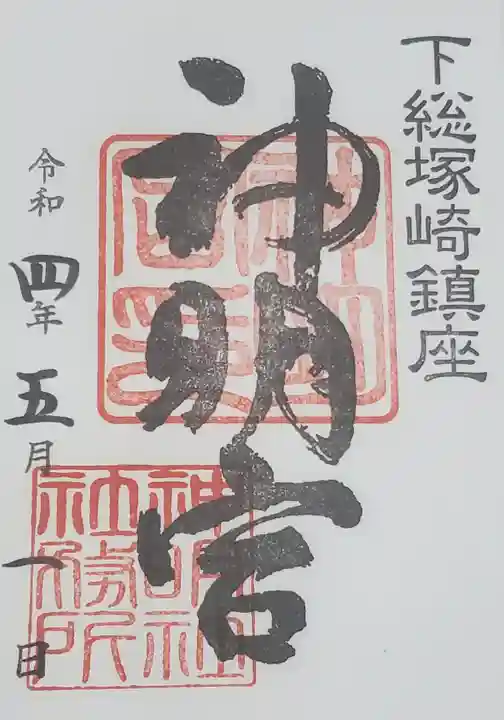 下総塚崎鎮座
神明宮
神明社
社務所
令和四年五月一日